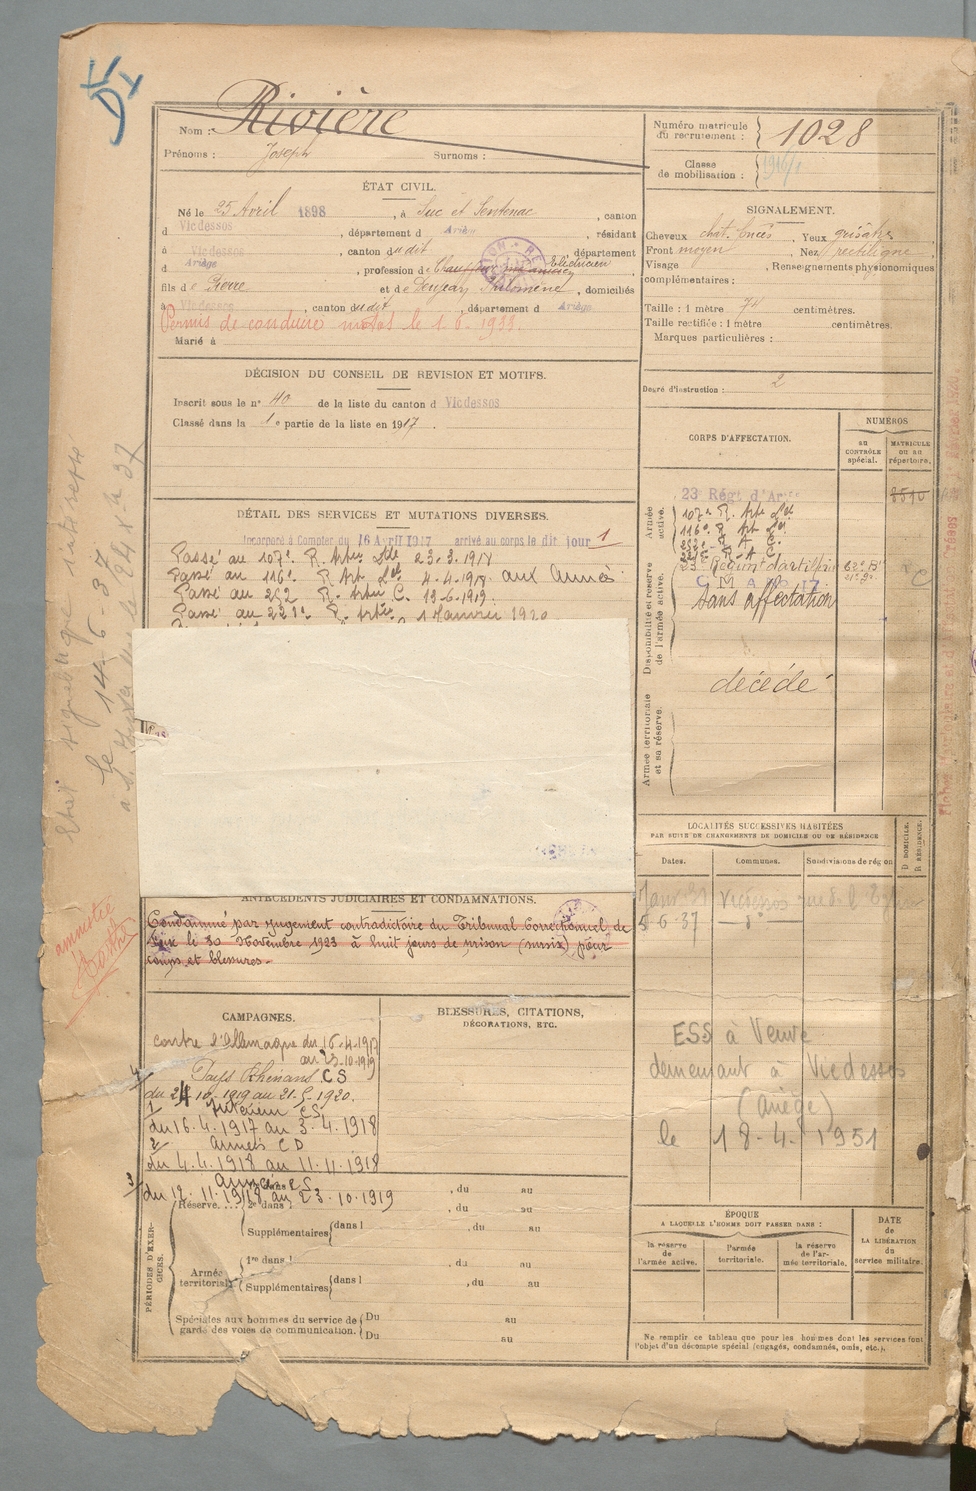 Nom : Rivière
Prénoms : Joseph Surnoms :
Numéro matricule du recrutement : 1028
Classe de mobilisation :
ÉTAT CIVIL.
Né le 25 Avril 1898, à Suc et Sentenac, canton
d Vicdessos, département d Ariège, résidant
à Vicdessos, canton dudit département
d Ariège, profession de Electricien
fils de Pierre et de Philomène, domiciliés
à Vicdessos, canton dudit, département d Ariège
Permis de conduire le 1.6.1933.
Marié à
SIGNALEMENT.
Cheveux chat. foncés Yeux grisâtres
Front moyen, Nez rectiligne
Visage, Renseignements physionomiques
complémentaires :
Taille : 1 mètre 74 centimètres.
Taille rectifiée : 1 mètre centimètres.
Marques particulières :
Degré d'instruction : 2
DÉCISION DU CONSEIL DE REVISION ET MOTIFS.
Inscrit sous le n° 40 de la liste du canton d Vicdessos
Classé dans la 1e partie de la liste en 1917.
DÉTAIL DES SERVICES ET MUTATIONS DIVERSES.
Incorporé à Compter du 16 Avril 1917 arrivé au corps le dit jour 1
Passé au 107e R. Artie Lde 23.3.1918
Passé au 116e R. Art Lde 4.4.1918 aux Armées
Passé au 252 R. Artie C. 13.6.1919.
Passé au 221e R. Artie 1 Janvier 1920
CORPS D'AFFECTATION.
NUMÉROS
au CONTRÔLE spécial.
MATRICULE ou au répertoire.
Armée active.
23 Régt d'Artie
107e R. Art Lde
116e R. Art Lde
Disponibilité et réserve de l'armée active.
Régiment d'artillerie
sans affectation
Armée territoriale et sa réserve.
décédé
LOCALITÉS SUCCESSIVES HABITÉES
PAR SUITE DE CHANGEMENTS DE DOMICILE OU DE RÉSIDENCE
Dates. Communes. Subdivisions de région
D DOMICILE. R RÉSIDENCE.
Vicdessos
5-6-37 — d°
ESS à Veuve
demeurant à Vicdessos
(Ariège)
le 18.4.1951
le 14-6-37
amnistié
ANTÉCÉDENTS JUDICIAIRES ET CONDAMNATIONS.
Condamné par jugement contradictoire du Tribunal Correctionnel de
Foix le 30 Novembre 1923 à huit jours de prison (sursis) pour
coups et blessures.
CAMPAGNES.
contre l'Allemagne du 16-4-1917
au 23-10-1919
4/ Pays Rhénans CS
du 24 10.1919 au 21.5.1920.
1/ Intérieur CS
du 16.4.1917 au 3.4.1918
2/ Armées CD
du 4.4.1918 au 11.11.1918
3/ Armées CS
du 12.11.1918 au 23.10.1919
BLESSURES, CITATIONS,
DÉCORATIONS, ETC.
PÉRIODES D'EXERCICES.
, du au
Réserve.... 2e dans l , du au
Supplémentaires dans l , du au
Armée territoriale 1re dans l , du au
Supplémentaires dans l , du au
Spéciales aux hommes du service de garde des voies de communication. Du au
Du au
ÉPOQUE
A LAQUELLE L'HOMME DOIT PASSER DANS :
la réserve de l'armée active.
l'armée territoriale.
la réserve de l'armée territoriale.
DATE de LA LIBÉRATION du service militaire.
Ne remplir ce tableau que pour les hommes dont les services font
l'objet d'un décompte spécial (engagés, condamnés, omis, etc.).